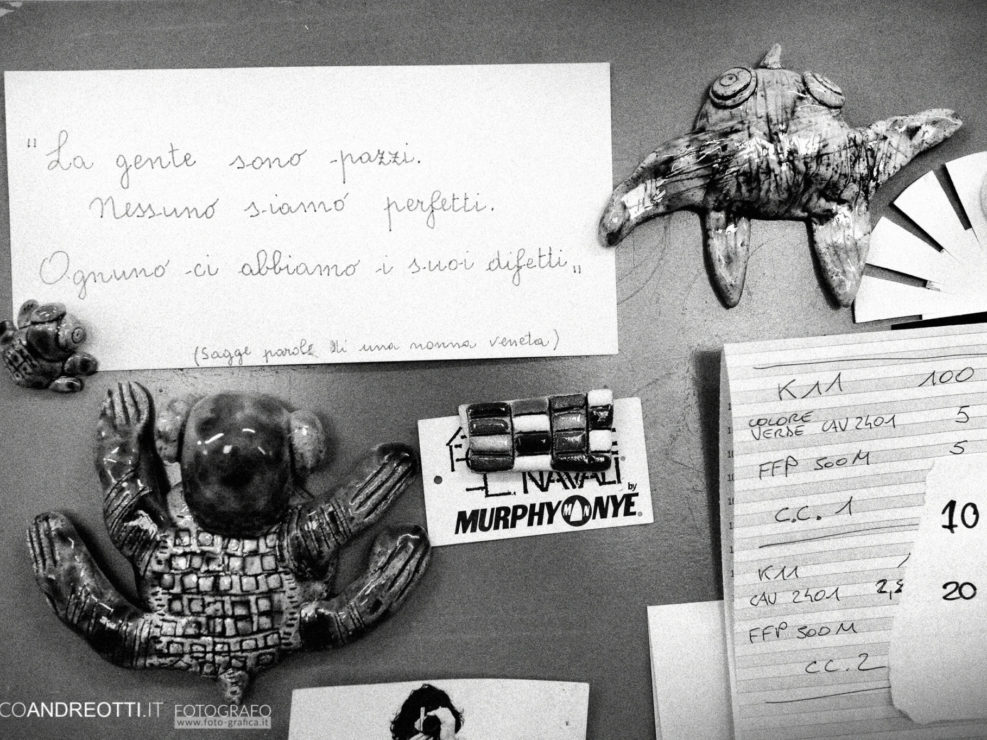 "La gente sono pazzi.
Nessuno siamo perfetti.
Ognuno ci abbiamo i suoi difetti"
(Sagge parole di una nonna veneta)
NAVALI
by
MURPHY NYE
K11 100
COLORE
VERDE CAV 2401 5
FFP 500M 5
C.C. 1
K11
CAV 2401
FFP 500M
CC. 2
10
20
COANDREOTTI.IT FOTOGRAFO
www.foto-grafica.it